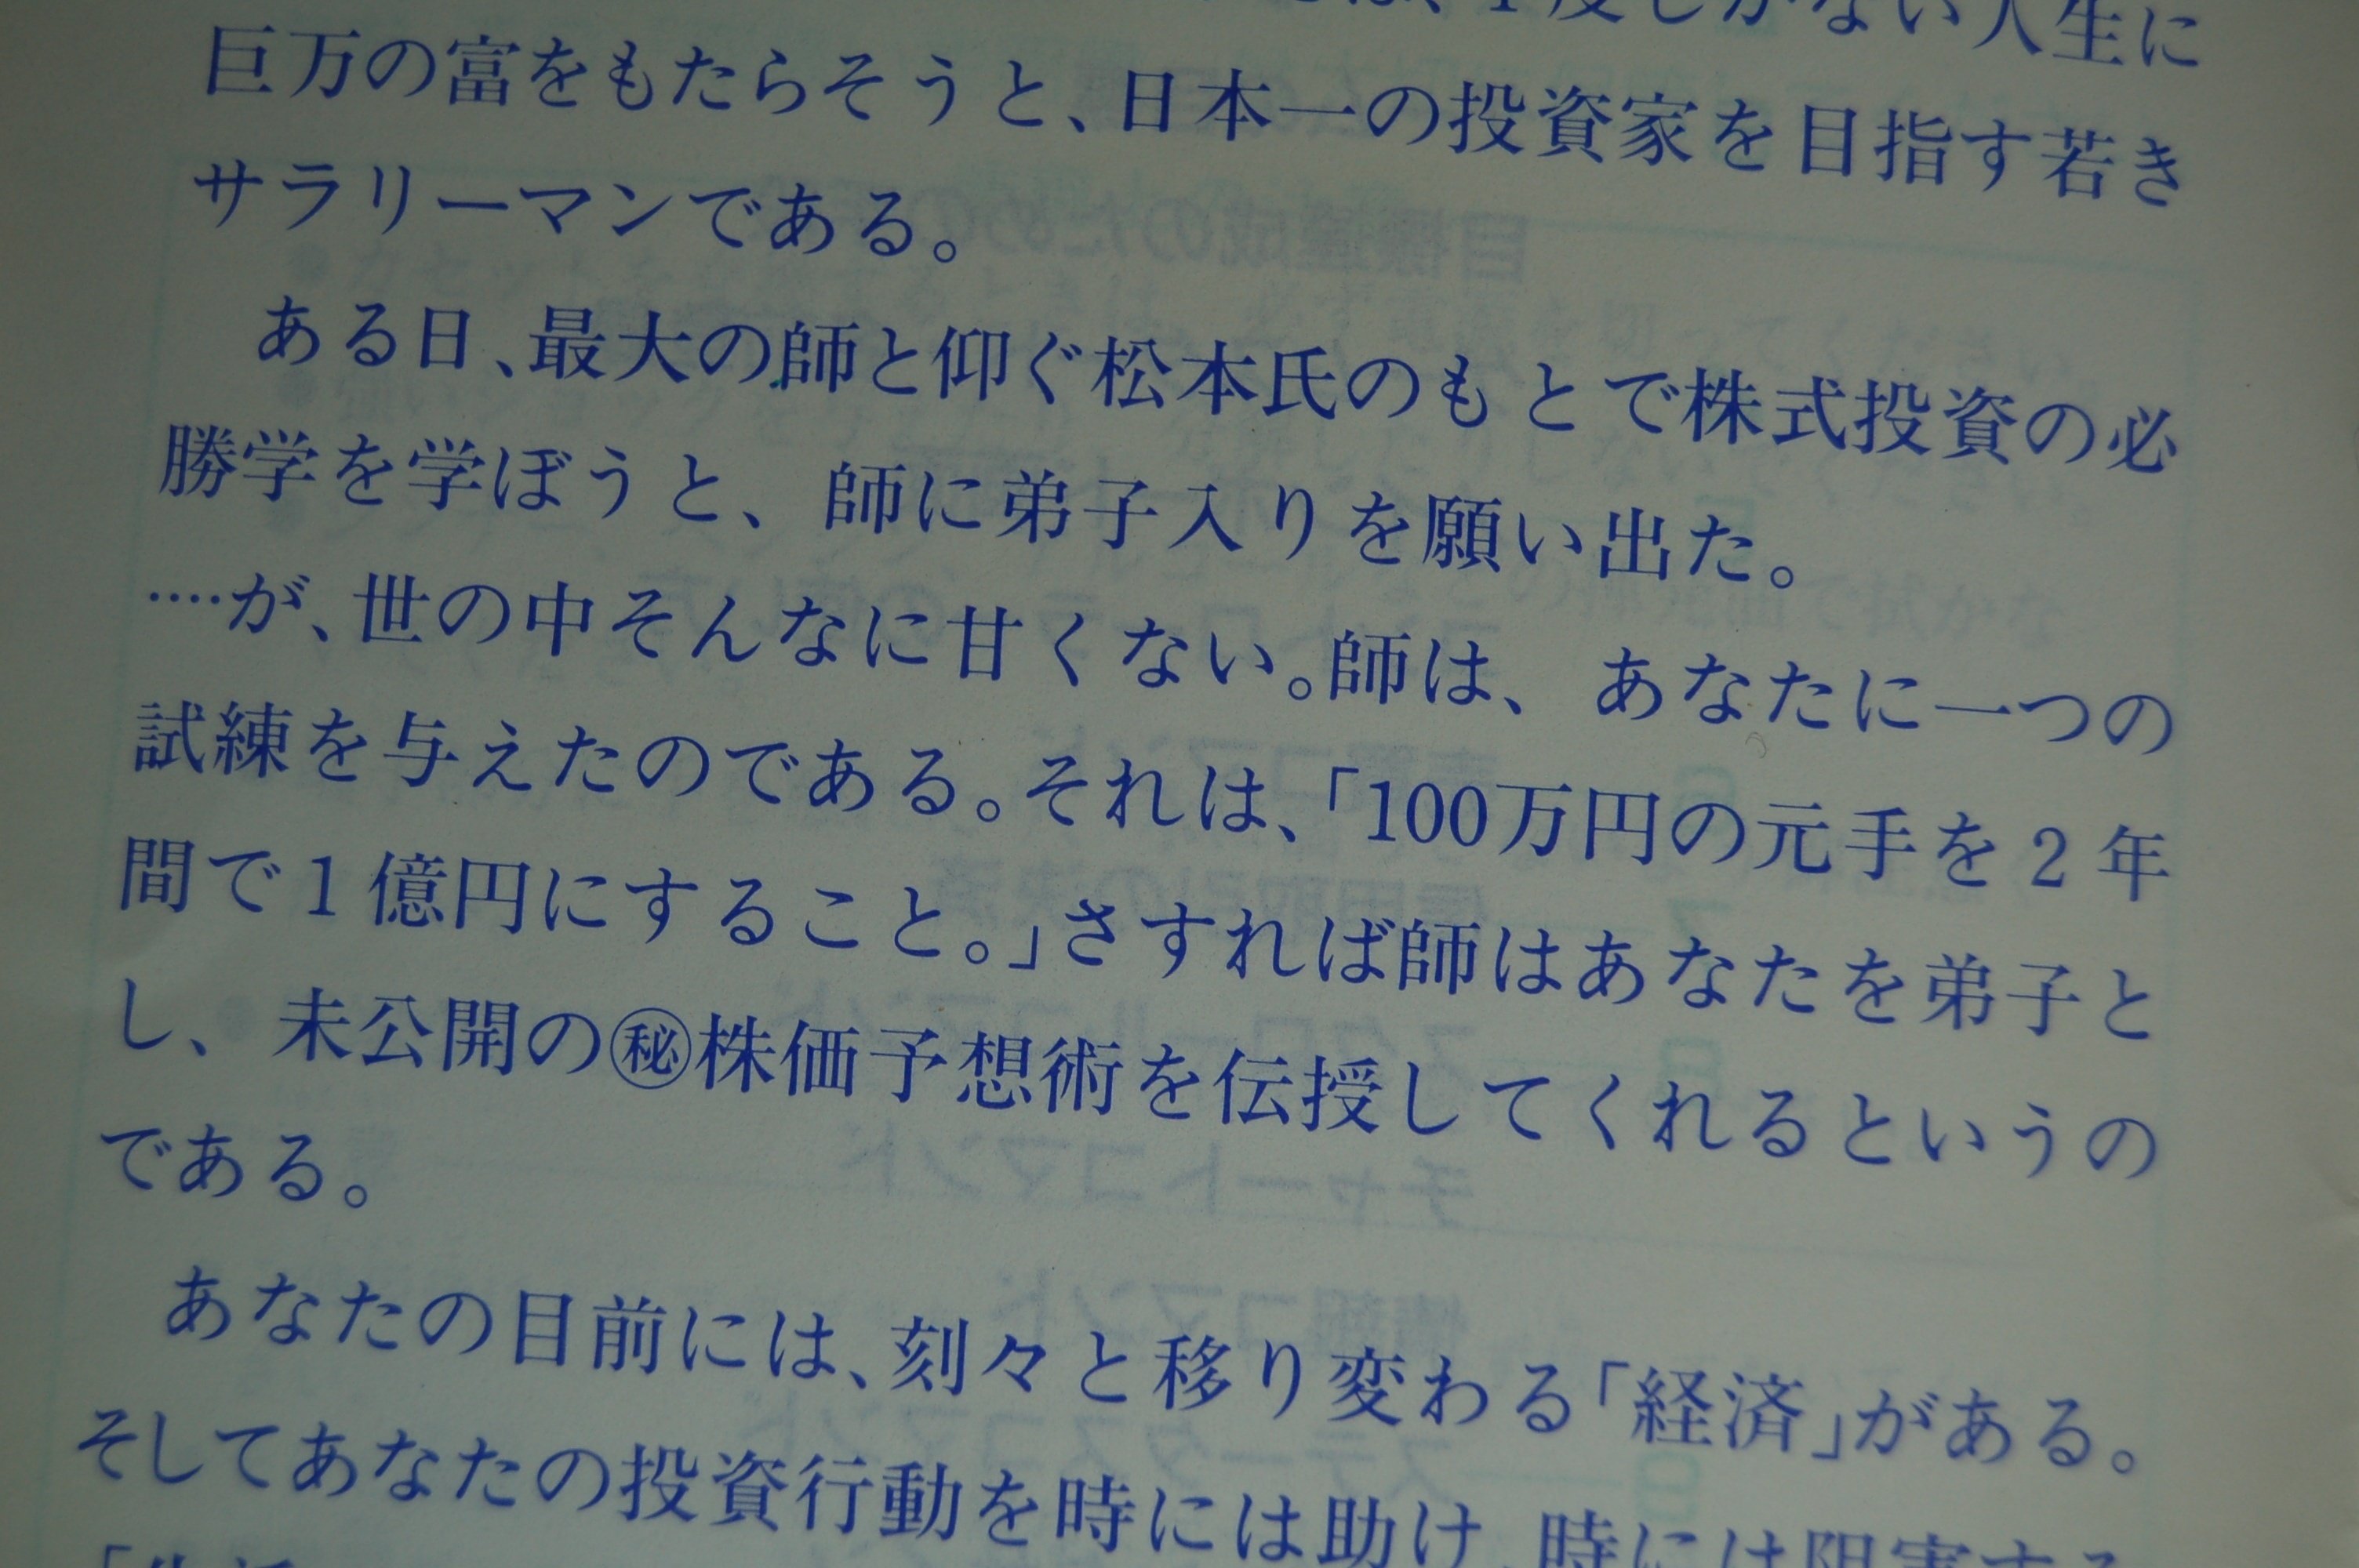 1度しかない人生に
巨万の富をもたらそうと、日本一の投資家を目指す若き
サラリーマンである。
ある日、最大の師と仰ぐ松本氏のもとで株式投資の必
勝学を学ぼうと、師に弟子入りを願い出た。
‥‥が、世の中そんなに甘くない。師は、あなたに一つの
試練を与えたのである。それは、「100万円の元手を2年
間で1億円にすること。」さすれば師はあなたを弟子と
し、未公開の㊙株価予想術を伝授してくれるというの
である。
あなたの目前には、刻々と移り変わる「経済」がある。
そしてあなたの投資行動を時には助け、時には阻害する